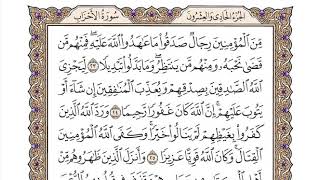 الجزء الحادي والعشرون سورة الأحزاب
مِّنَ ٱلْمُؤْمِنِينَ رِجَالٌ صَدَقُوا۟ مَا عَٰهَدُوا۟ ٱللَّهَ عَلَيْهِ ۖ فَمِنْهُم مَّن
قَضَىٰ نَحْبَهُۥ وَمِنْهُم مَّن يَنتَظِرُ ۖ وَمَا بَدَّلُوا۟ تَبْدِيلًا ٢٣ لِّيَجْزِىَ
ٱللَّهُ ٱلصَّٰدِقِينَ بِصِدْقِهِمْ وَيُعَذِّبَ ٱلْمُنَٰفِقِينَ إِن شَآءَ أَوْ
يَتُوبَ عَلَيْهِمْ ۚ إِنَّ ٱللَّهَ كَانَ غَفُورًا رَّحِيمًا ٢٤ وَرَدَّ ٱللَّهُ ٱلَّذِينَ
كَفَرُوا۟ بِغَيْظِهِمْ لَمْ يَنَالُوا۟ خَيْرًا ۚ وَكَفَى ٱللَّهُ ٱلْمُؤْمِنِينَ
ٱلْقِتَالَ ۚ وَكَانَ ٱللَّهُ قَوِيًّا عَزِيزًا ٢٥ وَأَنزَلَ ٱلَّذِينَ ظَٰهَرُوهُم مِّنْ